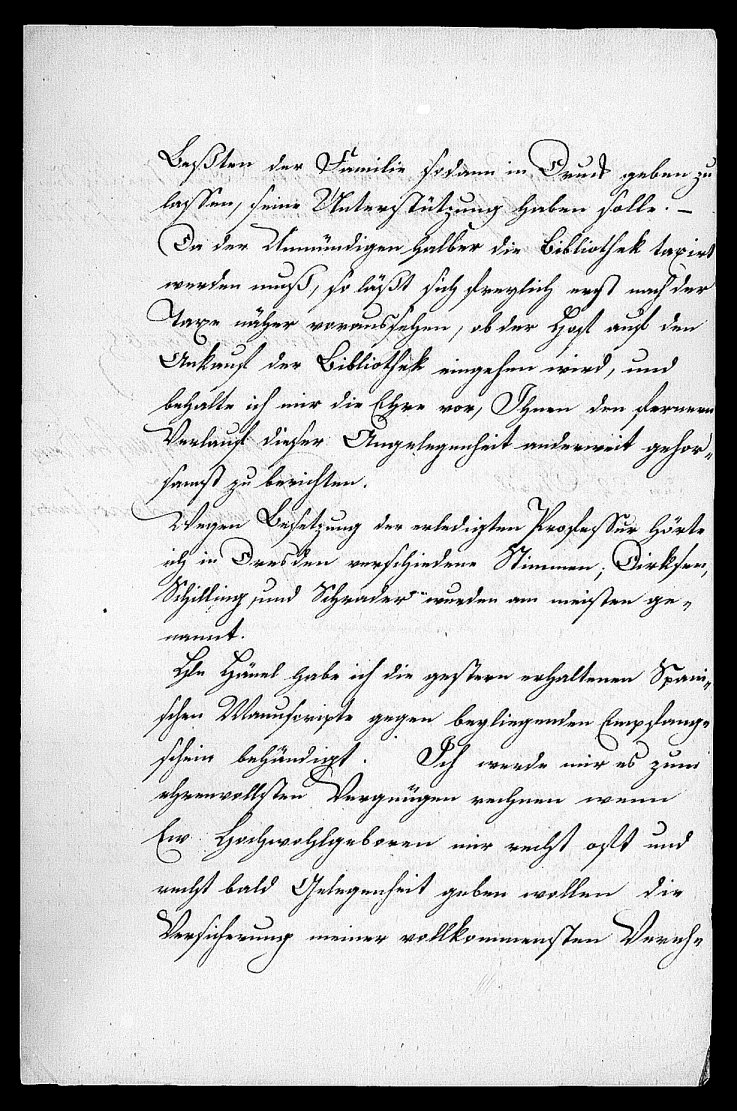 Beßten der Familie sodann in Druck geben zu
lassen, seine Unterstützung haben solle. –
Da der Unmündigen halber die Bibliothek taxirt
werden muß, so läßt sich freylich erst nach der
Taxe näher voraussehen, ob der Hof auf den
Ankauf der Bibliothek eingehen wird, und
behalte ich mir die Ehre vor, Ihnen den fernern
Verlauf dieser Angelegenheit anderweit gehor-
samst zu berichten.
Wegen Besetzung der erledigten Professur hörte
ich in Dresden verschiedene Stimmen; Dirksen,
Schilling, und Schrader wurden am meisten ge-
nannt.
Hänel habe ich die gestern erhaltenen Spani-
schen Manuscripte gegen beyliegenden Empfang-
schein behändigt. Ich werde mir es zum
ehrenvollsten Vergnügen rechnen wenn
Ew. Hochwohlgeboren mir recht oft und
recht bald Gelegenheit geben wollen die
Versicherung meiner vollkommensten Vereh-